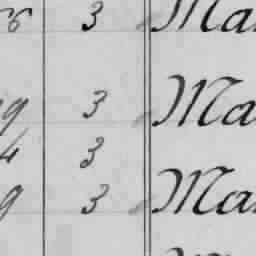 6 3 Ma
9 3 Ma
4 3
9 3 Ma